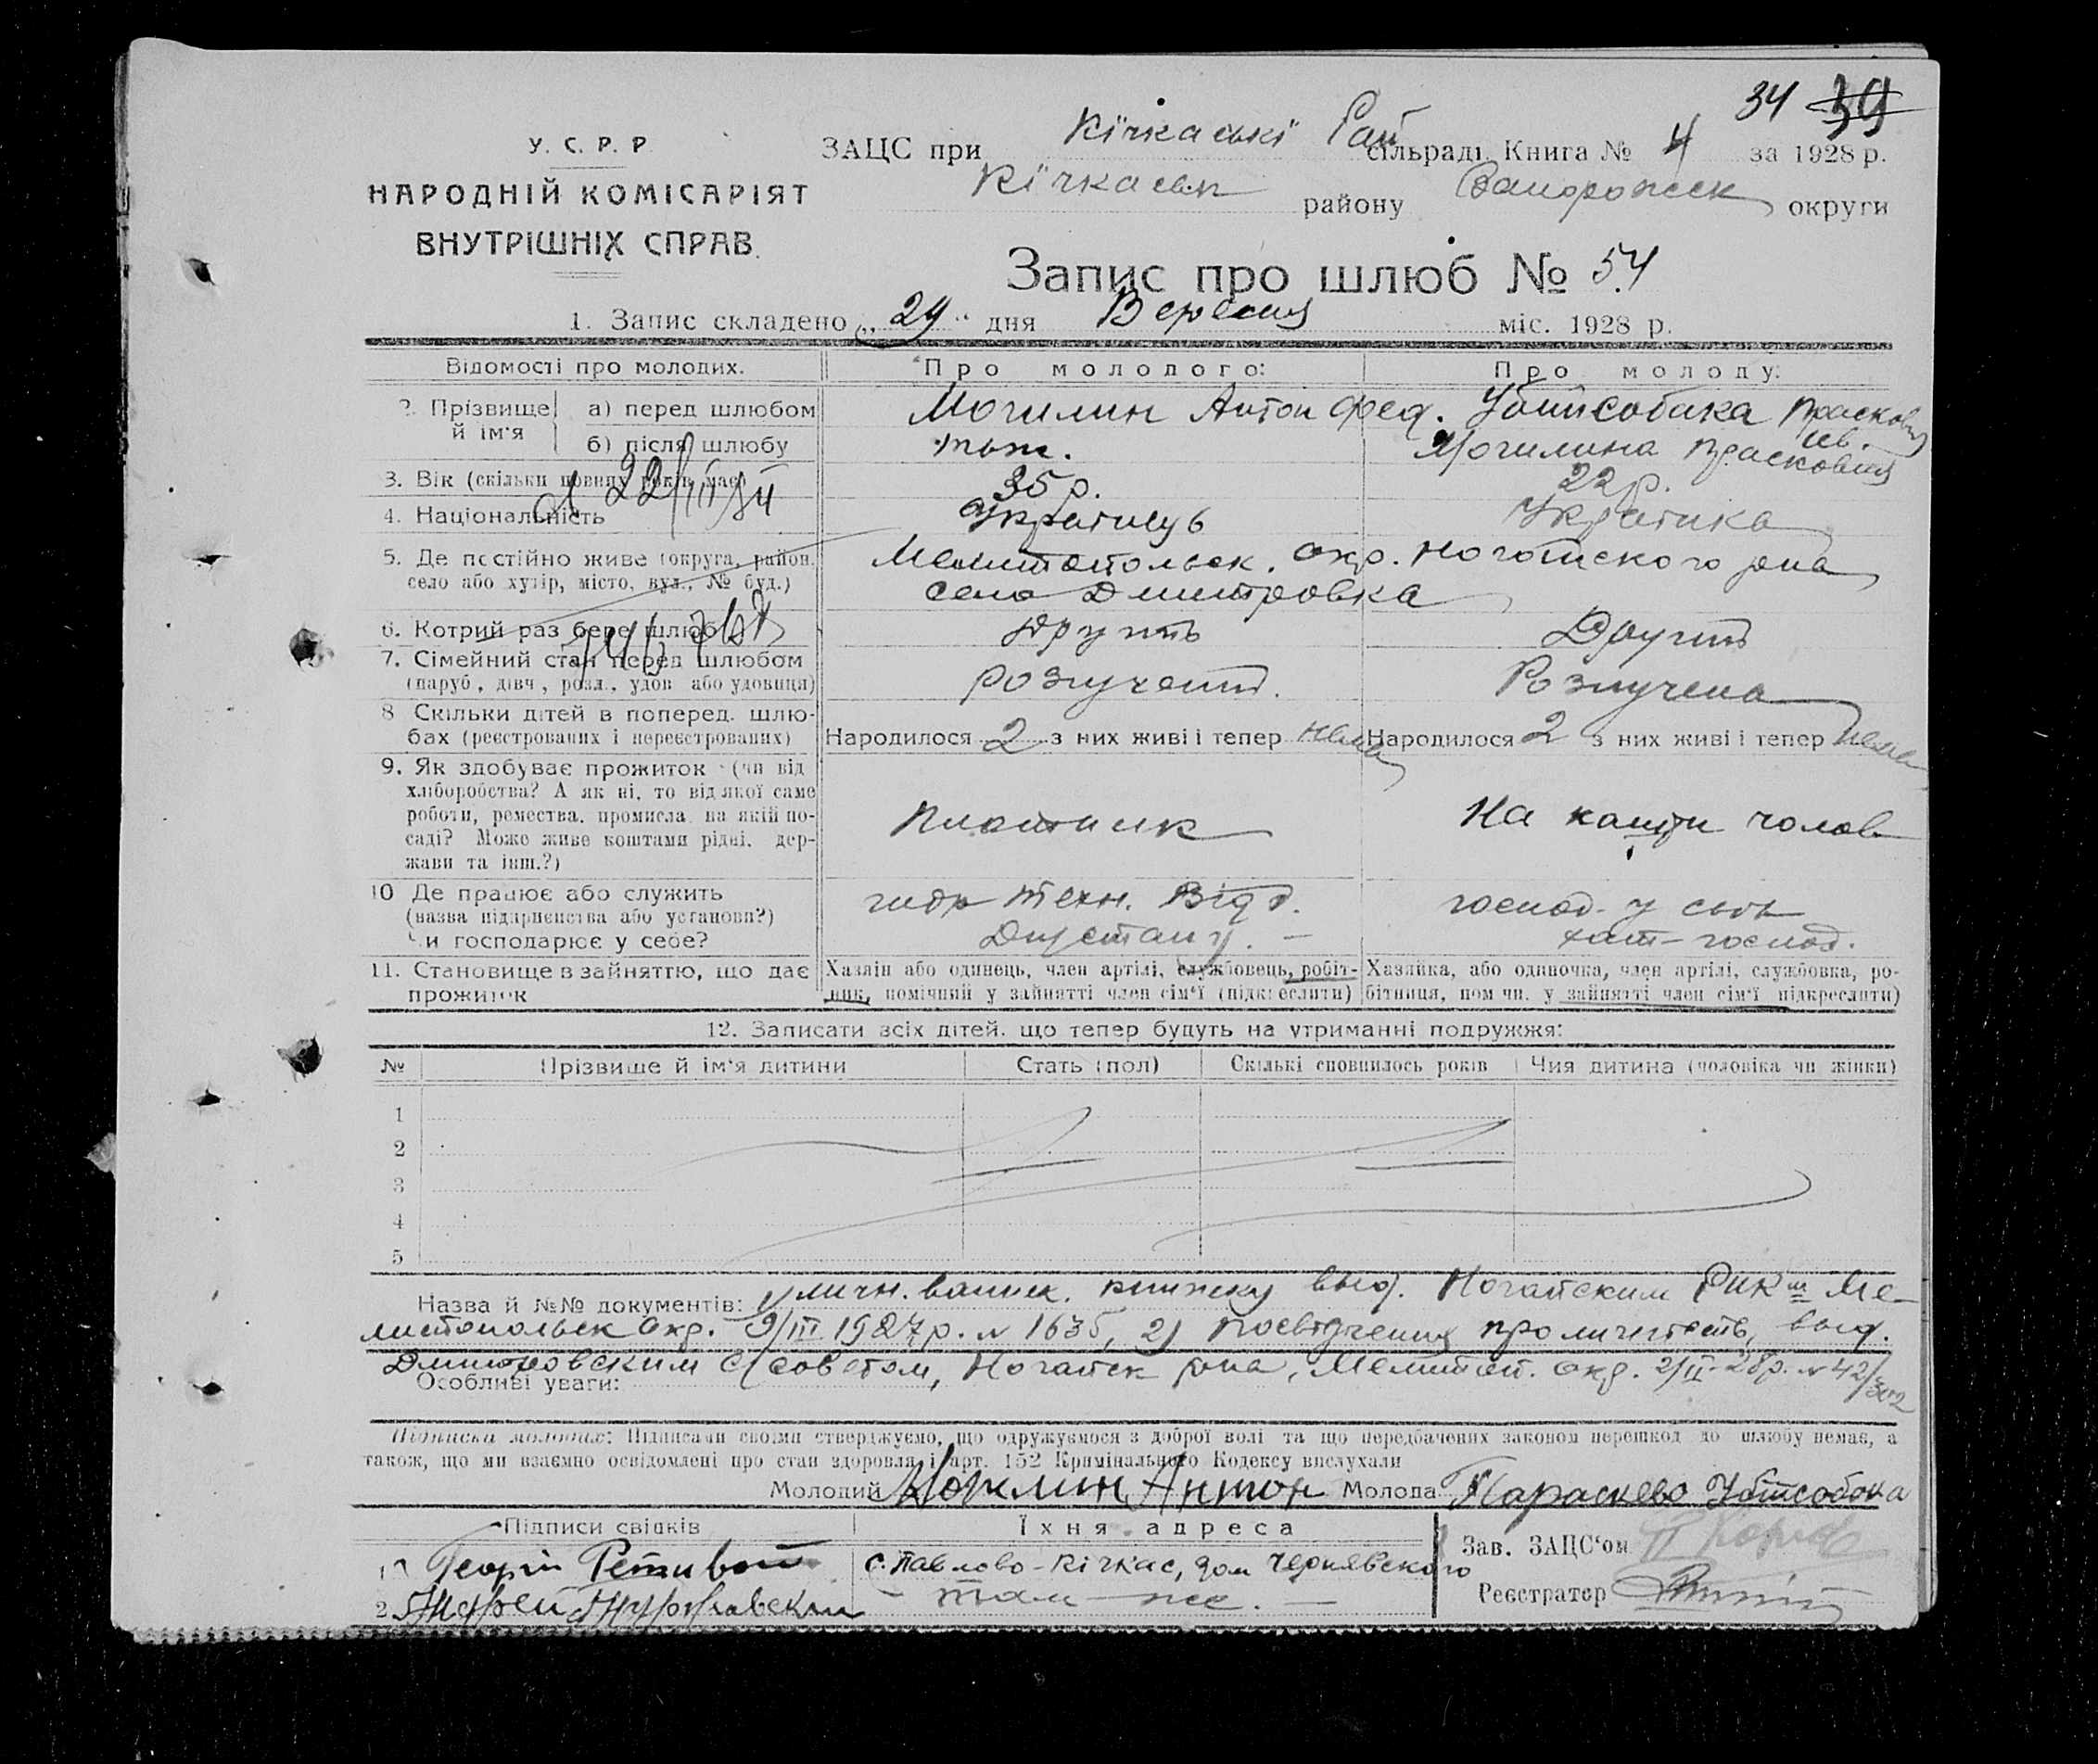 34 39
У. С. Р. Р
НАРОДНІЙ КОМІСАРІЯТ
ВНУТРІШНІХ СПРАВ.
ЗАЦС при Кічкаські Рай сільраді Книга № 4 за 1928 р.
Кічкаськ району Запорожск округи
Запис про шлюб № 54
1. Запис складено „29“ дня Вересня міс. 1928 р.
Відомості про молодих. Про молодого: Про молоду:
2. Прізвище й ім'я а) перед шлюбом Могилин Антон Фед. Убийсобака Прасковія Ів.
б) після шлюбу тож. Могилина Прасковія
3. Вік (скільки повних років має) 35 р. 22 р.
22/III
4. Національність Українець Українка
5. Де постійно живе (округа, район, Мелитопольськ. окр. Ногайского р-на
село або хутір, місто, вул., № буд.) село Дмитровка
6. Котрий раз бере шлюб Другий Другий
7. Сімейний стан перед шлюбом Розлучений. Розлучена
(паруб., дівч., розл., удов. або удовиця)
8 Скільки дітей в поперед. шлю-
бах (реєстрованих і нереєстрованих) Народилося 2 з них живі і тепер нема Народилося 2 з них живі і тепер нема
9. Як здобуває прожиток (чи від
хліборобства? А як ні, то від якої саме
роботи, ремества, промисла, на якій по- Плотник На кошти чолов
саді? Може живе коштами рідні, дер-
жави та інш.?)
10 Де працює або служить гидр техн. Відд. господ. у своі
(назва підприємства або установи?) Дністану. — хат — господ.
Чи господарює у себе?
11. Становище в зайняттю, що дає Хазяїн або одинець, член артілі, службовець, робіт- Хазяйка, або одиночка, член артілі, службовка, ро-
прожиток ник, помічний у зайнятті член сім'ї (підкреслити) бітниця, пом чн. у зайнятті член сім'ї підкреслити)
12. Записати всіх дітей, що тепер будуть на утриманні подружжя:
№ Прізвище й ім'я дитини Стать (пол) Скількі сповнилось років Чия дитина (чоловіка чи жінки)
1
2
3
4
5
Назва й №№ документів: личн. книжку выд. Ногайским Рик Ме-
литопольск окр. 9/III 1927 р. № 1635, 2) посвідчення про личність, выд.
Дмитровским С/советом, Ногайск р-на, Мелитоп. окр. 2/II-28 р. № 42/302
Особливі уваги:
Підписка молодих: Підписами своїми стверджуємо, що одружуємося з доброї волі та що передбачених законом перешкод до шлюбу немає, а
також, що ми взаємно освідомлені про стан здоровля і арт. 152 Кримінального Кодексу вислухали
Молодий Могилин Антон Молода Параскева Убийсобока
Підписи свідків Їхня адреса Зав. ЗАЦС'ом
1 Георгій Ретивой с. Павлово-Кічкас, дом Чернявского
2 там — же. — Реєстратор